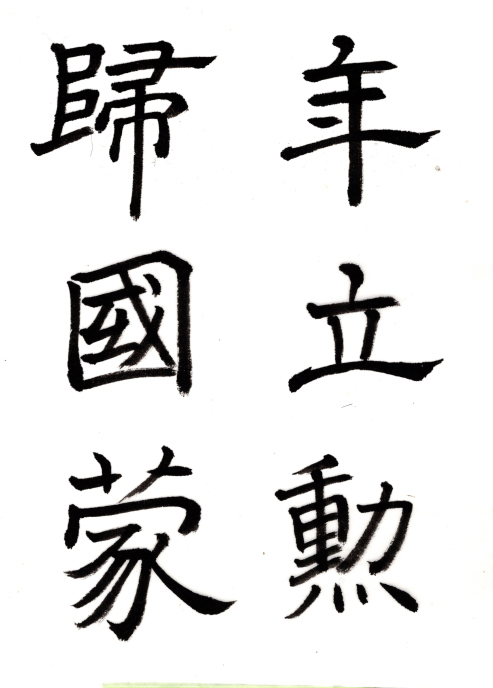 年立勲
歸國蒙